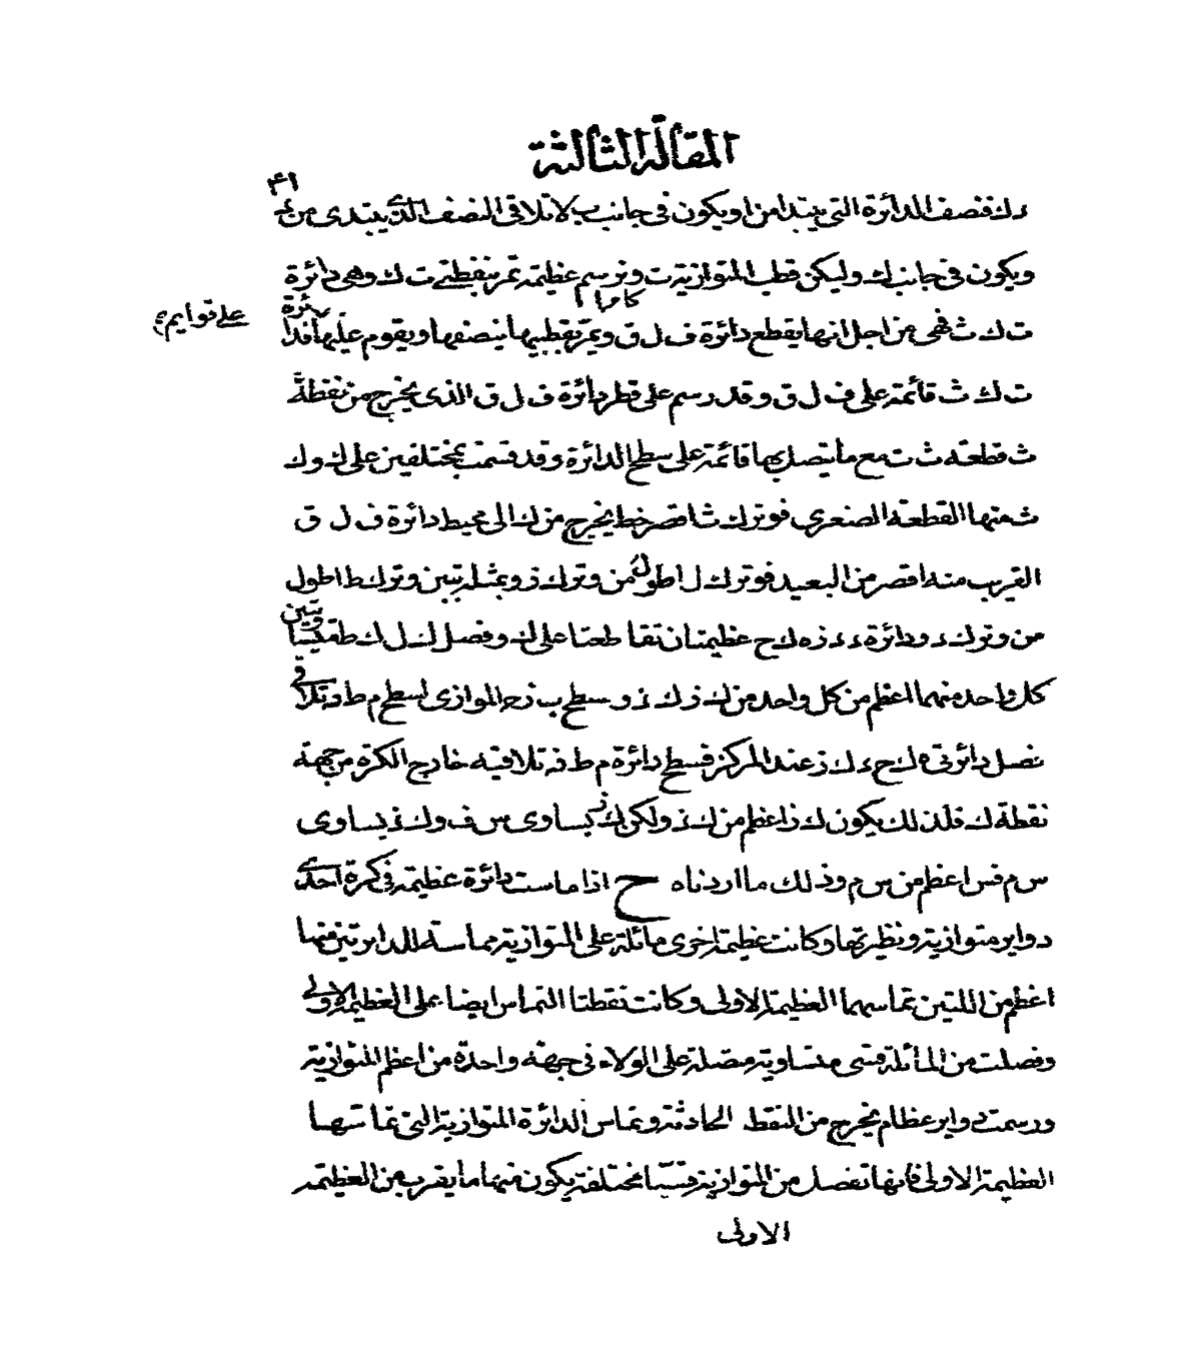 المقالة الثالثة
٤١
ء ك فنصف الدائرة التي يبتدا من ا ويكون في جانب ب لا تلاقي النصف الذي يبتدى من ء
ويكون في جانب ك وليكن قطب المتوازية ت ونرسم عظيمة تمر بنقطتي ت ك وهي دائرة
كا مرا
ت ك ث فهي من اجل انها يقطع دائرة ف ل ق ويمر بقطبيها ينصفها ويقوم عليها فدائرة
على قوايم
ت ك ث قائمة على ف ل ق وقد رسم على قطر دائرة ف ل ق الذى يخرج من نقطة
ث قطعة ث ت مع ما يتصل بها قائمة على سطح الدائرة وقد قسمت بمختلفين على ك و ك
ث منها القطعة الصغرى فوتر ك ث اقصر خط يخرج من ك الى محيط دائرة ف ل ق
القريب منه اقصر من البعيد فوتر ك ل اطول من وتر ك ز وبمثله تبين وتر ك ط اطول
من وتر ك ء ودائرة ء ء ز ه ك ح عظيمتان تقاطعتا على ك وفصل ك ل ك ط قسيتا وتبين
كل واحد منهما اعظم من كل واحد من ك ز ك ء وسطح ب ز ح الموازى لسطح م ط ف تلاقى
فصل دائرتى ه ك ح ء ك ز عند المركز فسطح دائرة م ط ف تلاقيه خارج الكرة من جهة
نقطة ك فلذلك يكون ك ز اعظم من ك ء ولكن ك ز يساوى س ف و ك ء يساوى
س م فس اعظم من س م وذلك ما اردناه ح اذا ماست دائرة عظيمة في كرة احدى
دواير متوازية ونظيرتها وكانت عظيمة اخرى مائلة على المتوازية مماسة للدايرتين منها
اعظم من اللتين تماسهما العظيمة الاولى وكانت نقطتا التماس ايضا على العظيمة الاولى
وفصلت من المائلة قسى متساوية متصلة على الولاء في جهة واحدة من اعظم المتوازية
ورسمت دواير عظام يخرج من النقط الحادثة وتماس الدائرة المتوازية التي تماستها
العظيمة الاولى فانها تفصل من المتوازية قسيا مختلفة يكون منها ما يقرب من العظيمة
الاولى